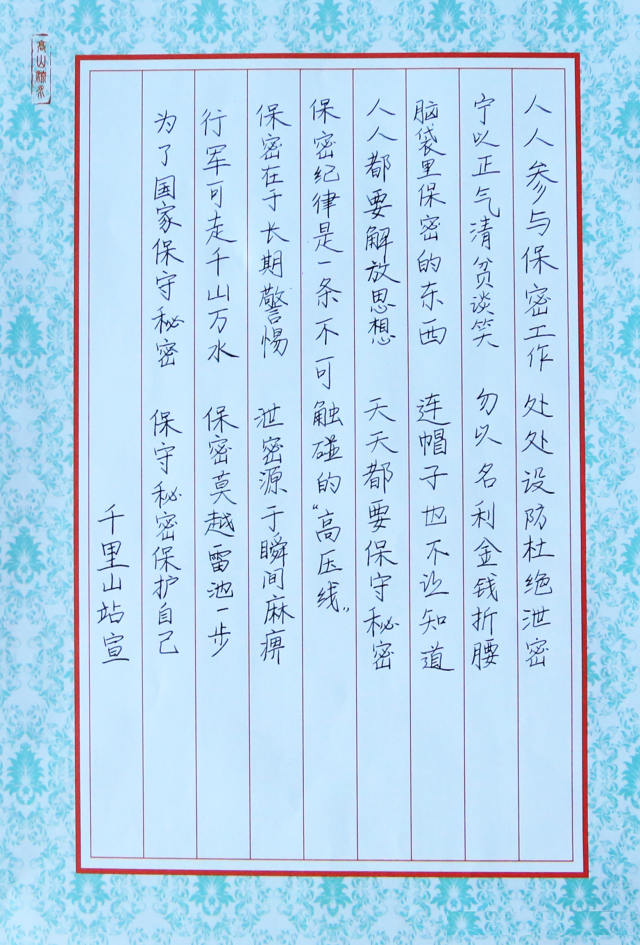 人人参与保密工作 处处设防杜绝泄密
宁以正气清贫谈笑 勿以名利金钱折腰
脑袋里保密的东西 连帽子也不让知道
人人都要解放思想 天天都要保守秘密
保密纪律是一条不可触碰的“高压线”
保密在于长期警惕 泄密源于瞬间麻痹
行军可走千山万水 保密莫越雷池一步
为了国家保守秘密 保守秘密保护自己
千里山站宣
高山流水